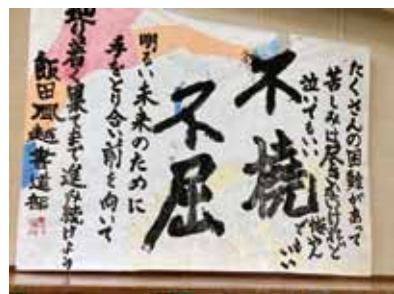 たくさんの困難があって
苦しみは尽きないけれど
泣いてもいい
悩んでもいい
不撓
不屈
明るい未来のために
手をとり合い前を向いて
辿り着く果てまで進み続けよう
飯田風越書道部